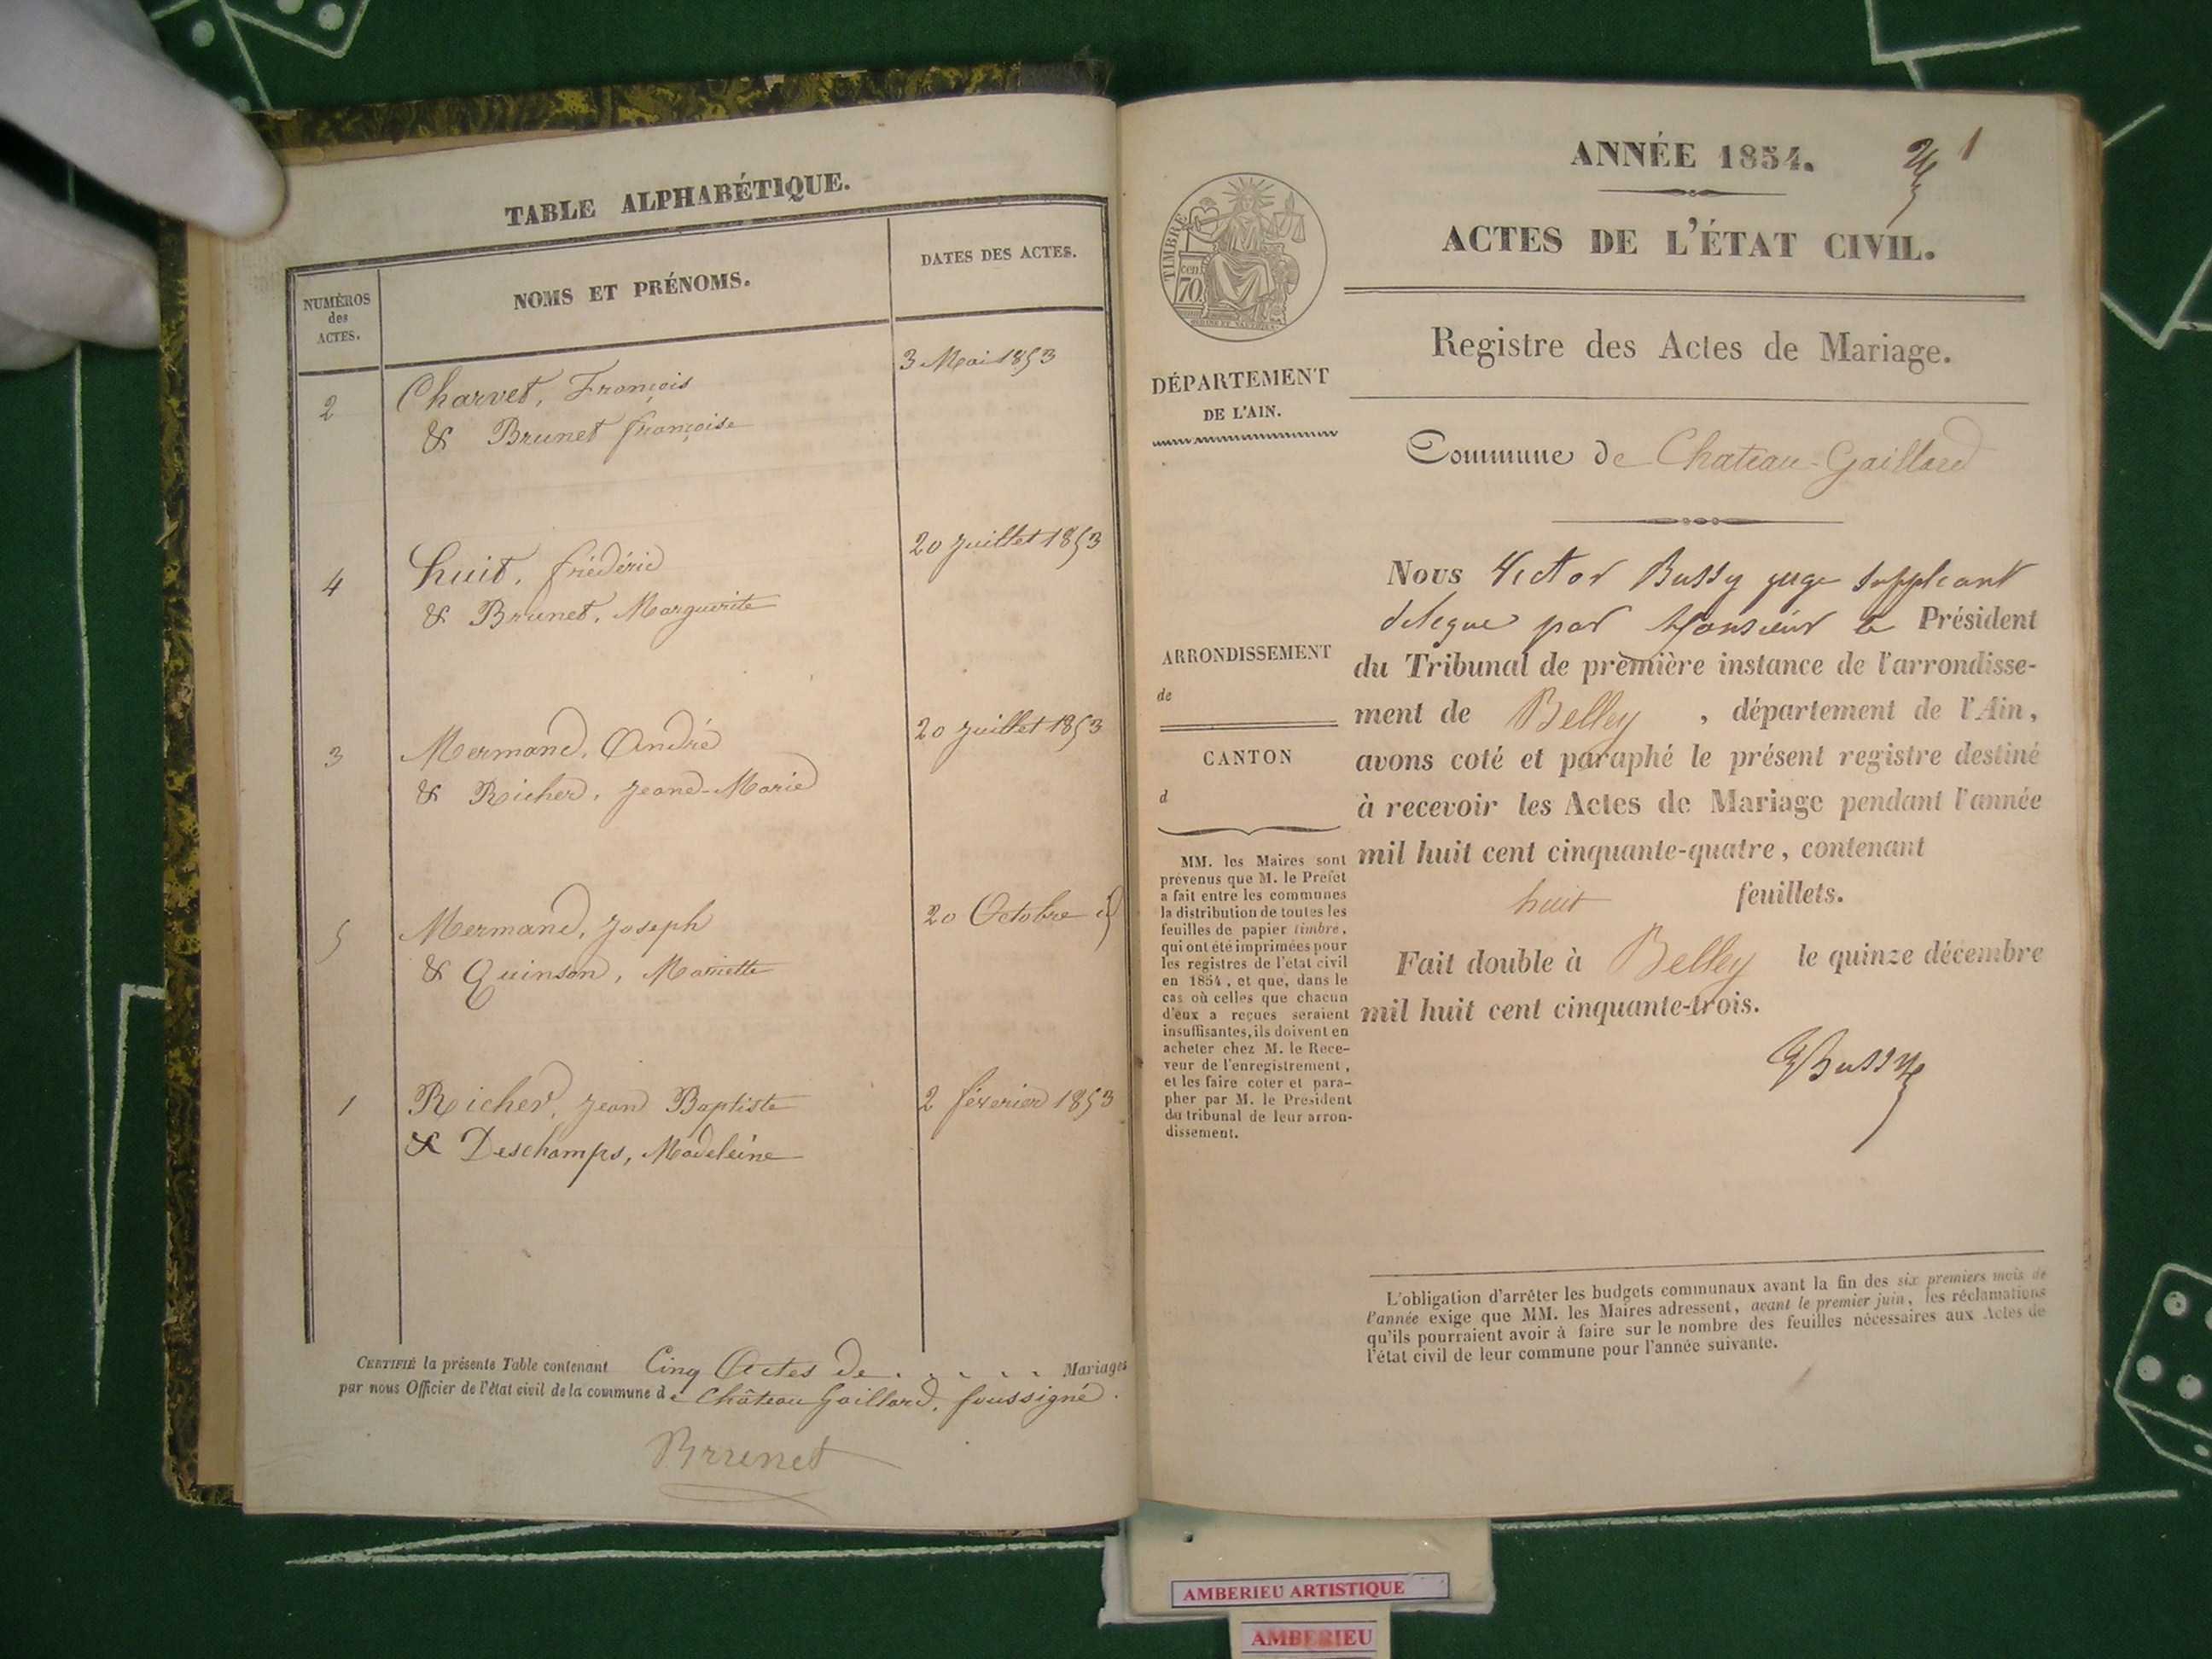 TABLE ALPHABÉTIQUE.
NUMÉROS
des
ACTES.
NOMS ET PRÉNOMS.
DATES DES ACTES.
2 Charvet, François 3 Mai 1853
& Brunet françoise
4 huit, frédéric 20 Juillet 1853
& Brunet, Marguerite
3 Mermand, André 20 Juillet 1853
& Richer, Jeane-Marie
5 Mermand, Joseph 20 Octobre id
& Quinson, Mariette
1 Richer, Jean Baptiste 2 féverier 1853
& Deschamps, Madeleine
CERTIFIÉ la présente Table contenant Cinq Actes de . . . . . Mariages
par nous Officier de l'état civil de la commune de Château Gaillard, soussigné.
Brunet
ANNÉE 1854. 1
ACTES DE L'ÉTAT CIVIL.
TIMBRE
70 cen.
Registre des Actes de Mariage.
DÉPARTEMENT
DE L'AIN.
Commune de Chateau-Gaillard
ARRONDISSEMENT
de
CANTON
d
MM. les Maires sont
prévenus que M. le Préfet
a fait entre les communes
la distribution de toutes les
feuilles de papier timbré,
qui ont été imprimées pour
les registres de l'état civil
en 1854, et que, dans le
cas où celles que chacun
d'eux a reçues seraient
insuffisantes, ils doivent en
acheter chez M. le Rece-
veur de l'enregistrement,
et les faire coter et para-
pher par M. le Président
du tribunal de leur arron-
dissement.
Nous Victor Bussy juge suppleant
delegue par Monsieur le Président
du Tribunal de première instance de l'arrondisse-
ment de Belley, département de l'Ain,
avons coté et paraphé le présent registre destiné
à recevoir les Actes de Mariage pendant l'année
mil huit cent cinquante-quatre, contenant
huit feuillets.
Fait double à Belley le quinze décembre
mil huit cent cinquante-trois.
VBussy
L'obligation d'arrêter les budgets communaux avant la fin des six premiers mois de
l'année exige que MM. les Maires adressent, avant le premier juin, les réclamations
qu'ils pourraient avoir à faire sur le nombre des feuilles nécessaires aux Actes de
l'état civil de leur commune pour l'année suivante.
AMBERIEU ARTISTIQUE
AMBERIEU